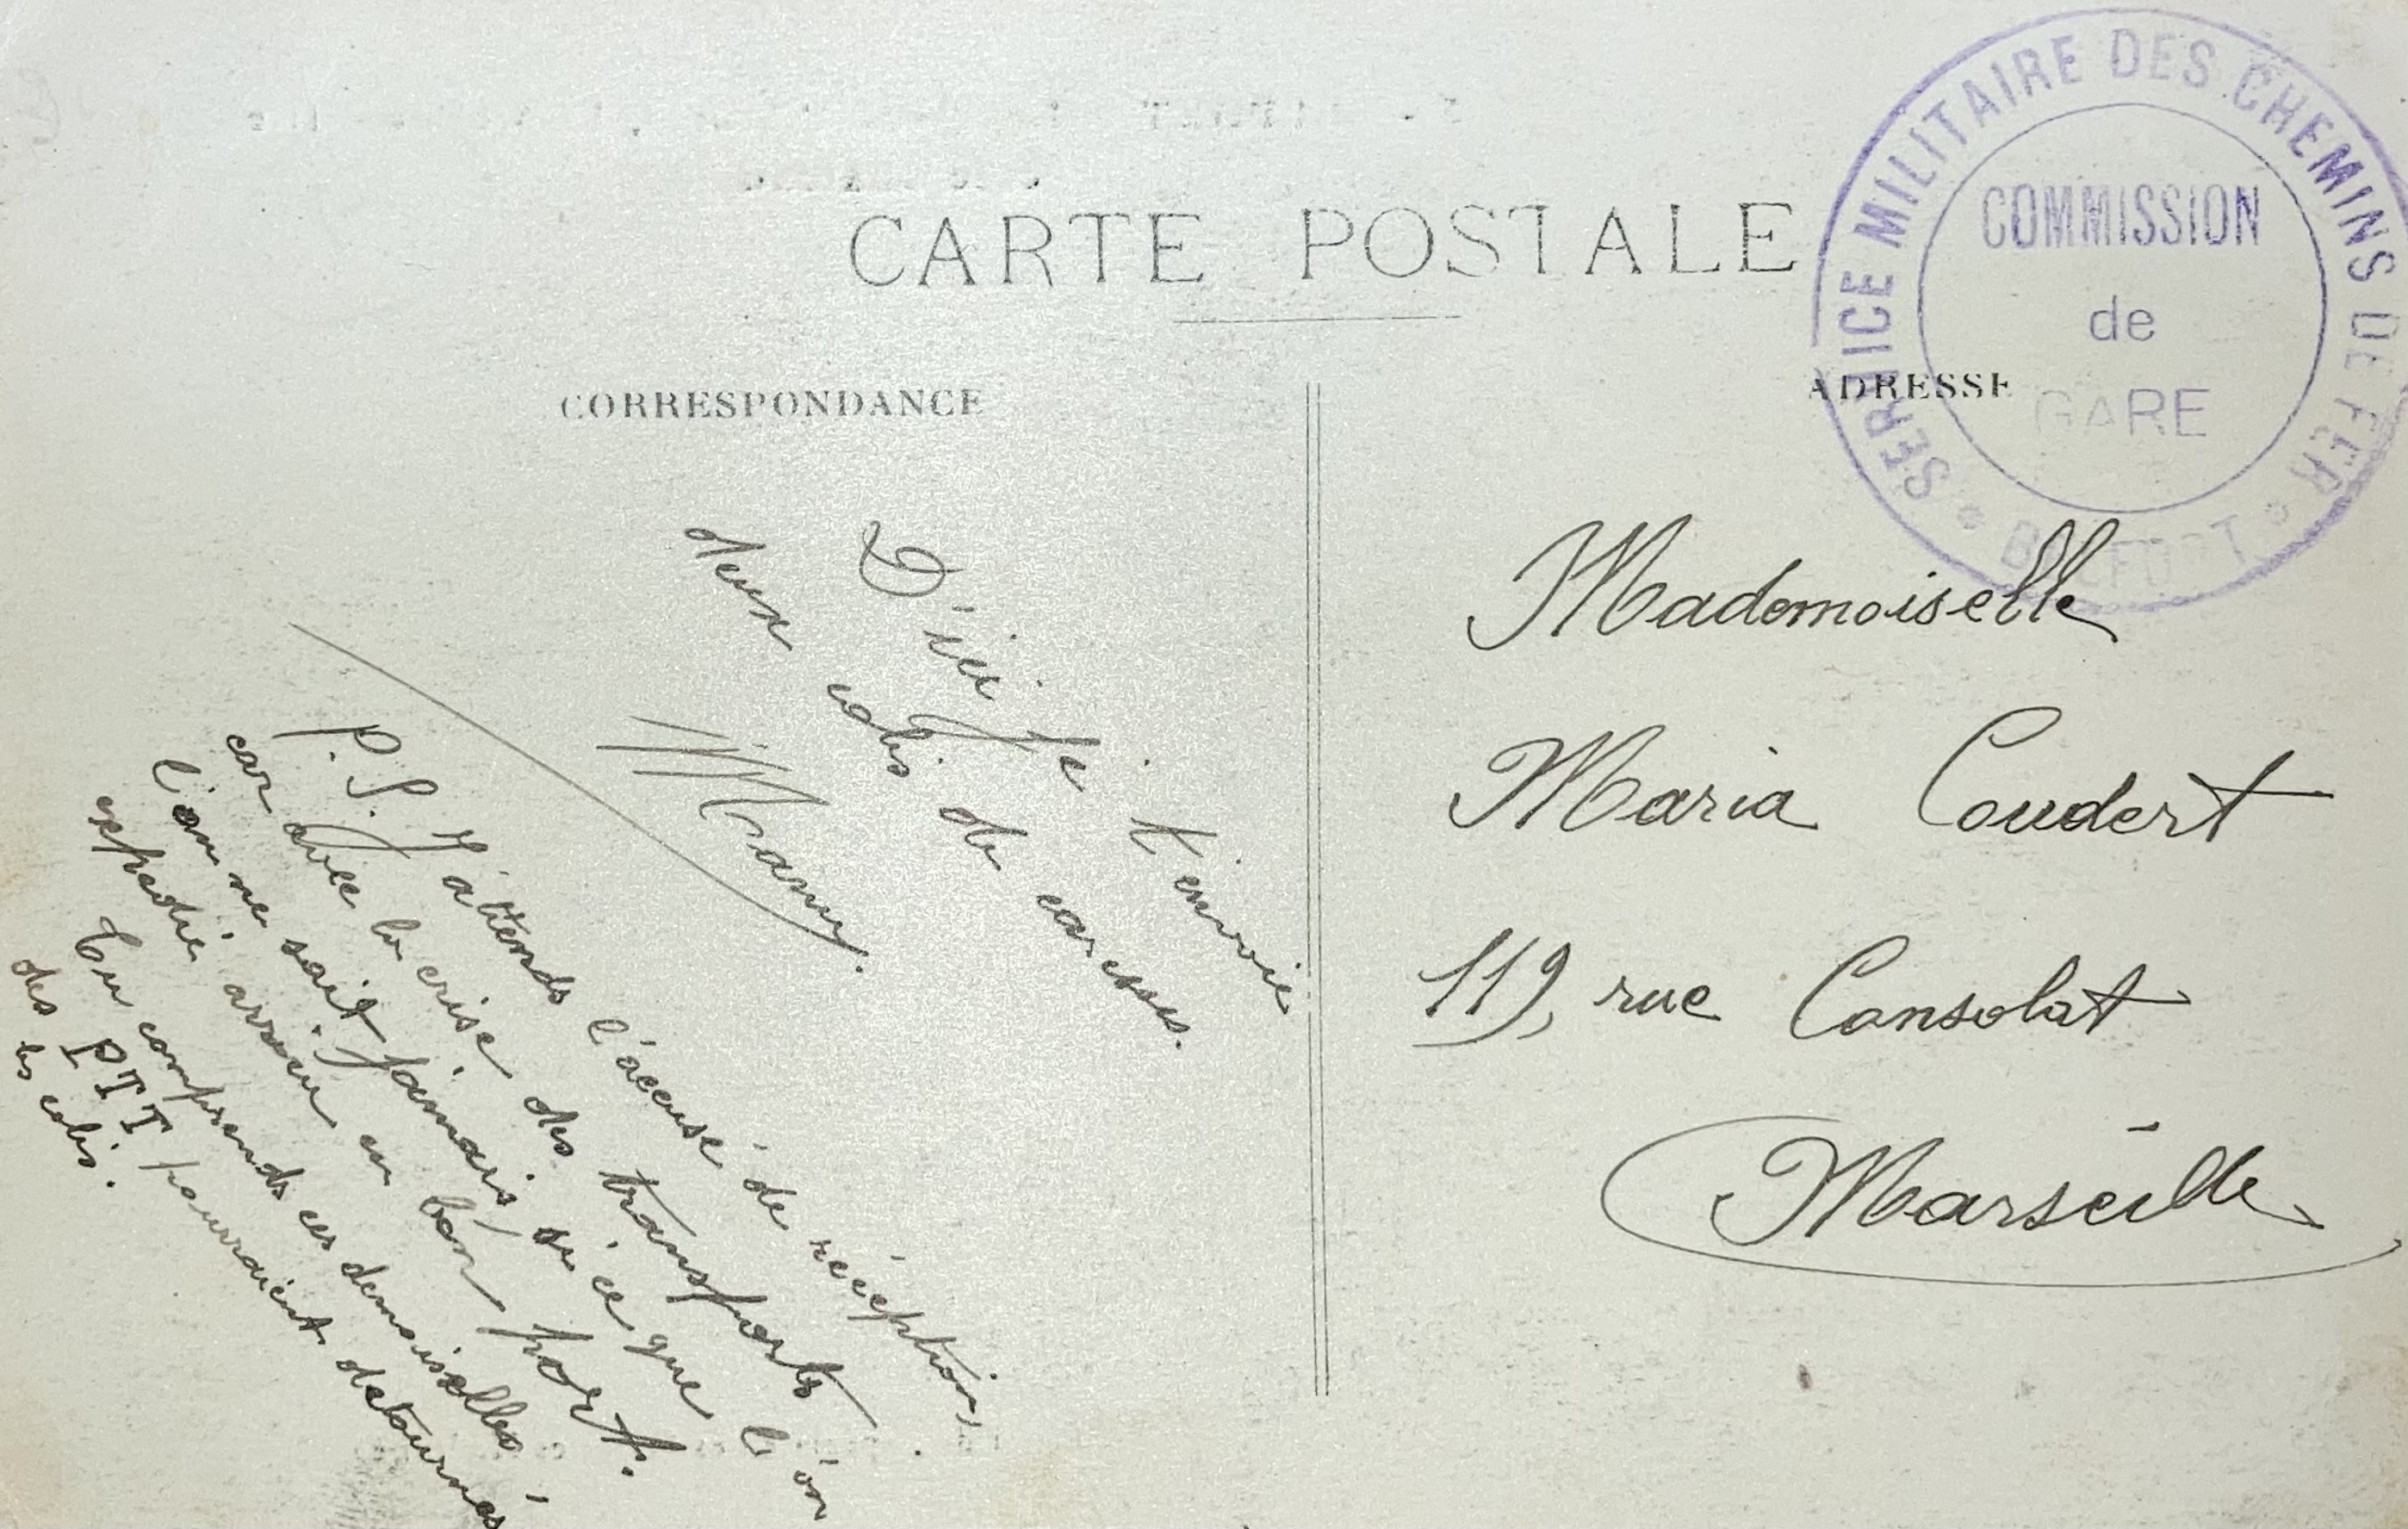 CARTE POSTALE
CORRESPONDANCE
ADRESSE
SERVICE MILITAIRE DES CHEMINS DE FER
COMMISSION
de
GARE
BELFORT
D'ici je t'envoie
deux colis de caresses.
Mamy.
P.S. J'attends l'accusé de réception,
car avec la crise des transports
l'on ne sait jamais si ce que l'on
expédie arrive en bon port.
Tu comprends ces demoiselles
des PTT pourraient détournés
les colis.
Mademoiselle
Maria Coudert
119, rue Consolat
Marseille